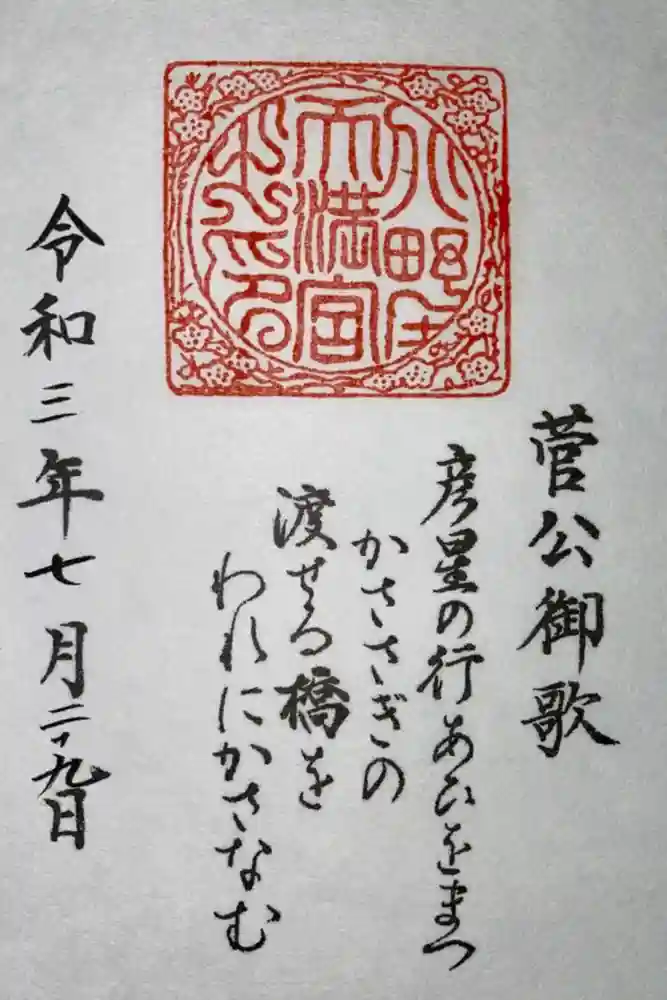 天満宮
菅公御歌
彦星の行あひをまつ
かささぎの
渡せる橋を
われにかさなむ
令和三年七月二十九日